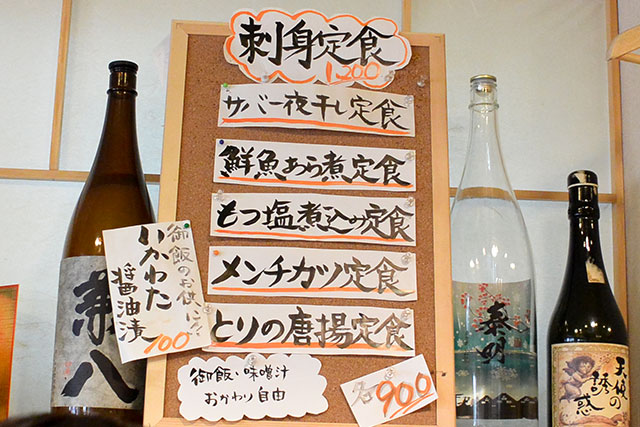 刺身定食
1,200
サバ一夜干し定食
鮮魚あら煮定食
もつ塩煮込み定食
メンチカツ定食
とりの唐揚定食
御飯・味噌汁
おかわり自由
各900
御飯のお供に
いかわた
醤油漬
100
兼八
泰明
天使の
誘惑